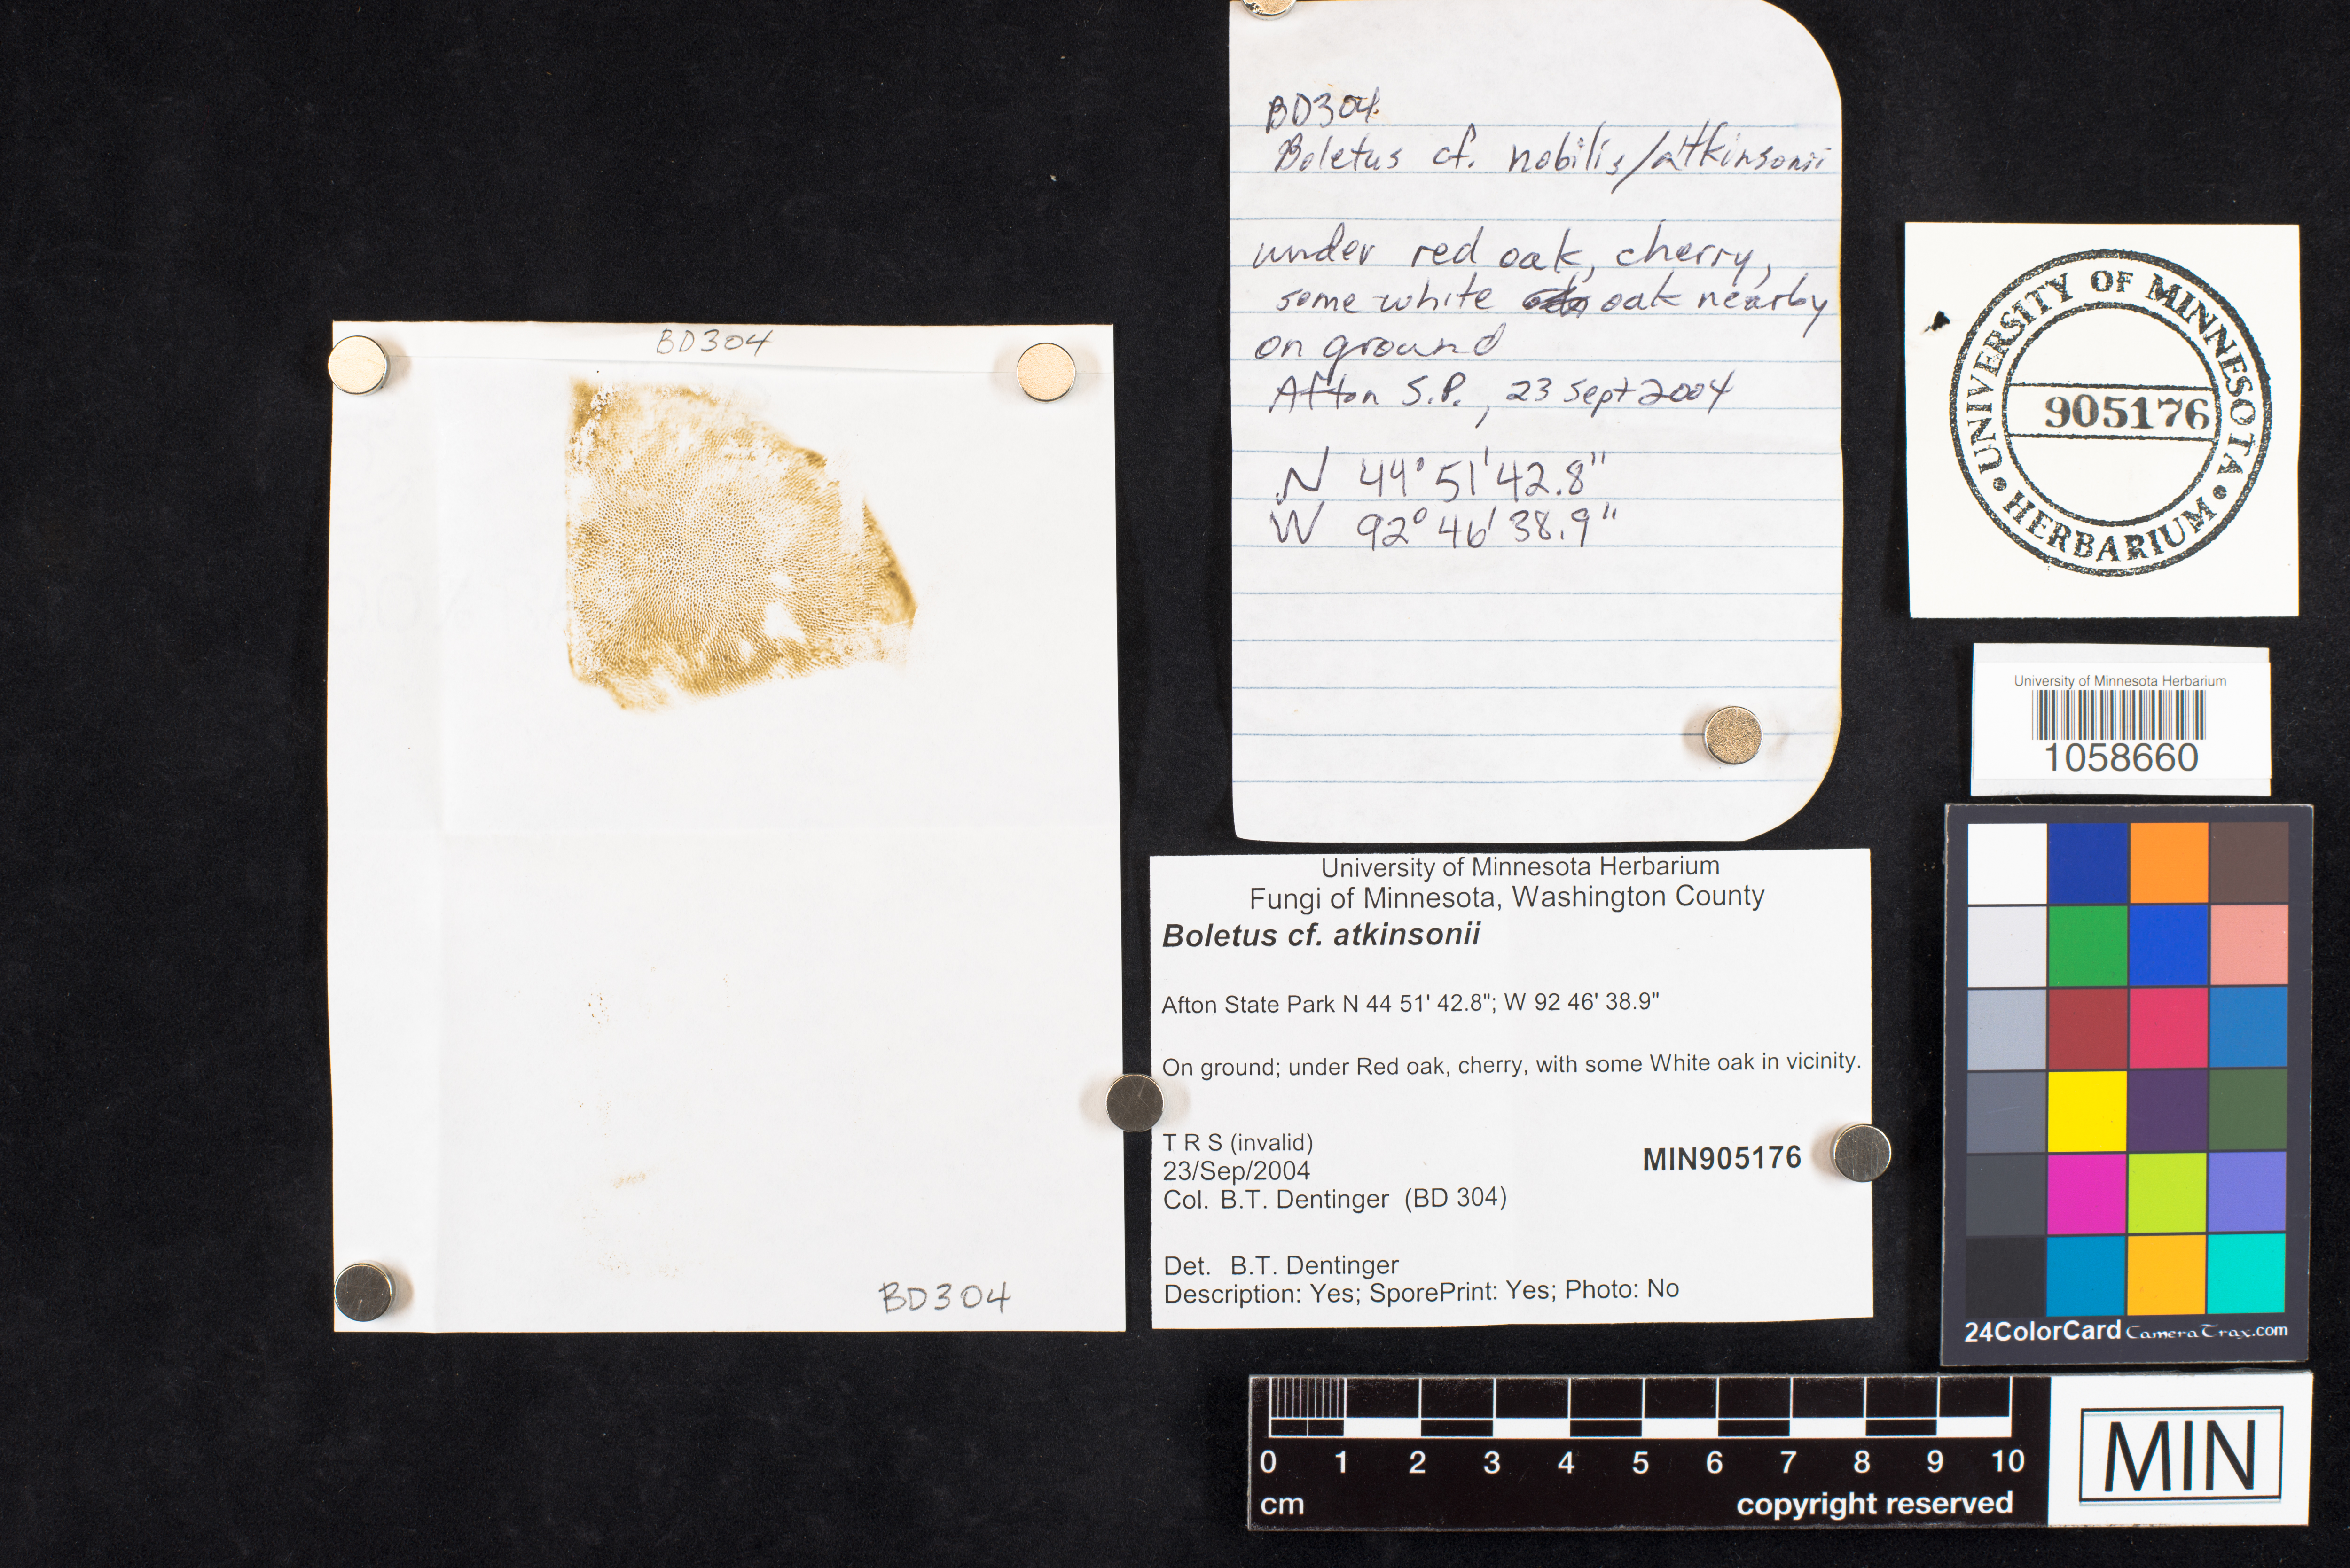 BD304
BD304
BD304
Boletus cf. nobilis/atkinsonii
under red oak, cherry,
some white oak nearby
on ground
Afton S.P., 23 Sept 2004
N 44° 51' 42.8"
W 92° 46' 38.9"
UNIVERSITY OF MINNESOTA
905176
HERBARIUM
University of Minnesota Herbarium
1058660
University of Minnesota Herbarium
Fungi of Minnesota, Washington County
Boletus cf. atkinsonii
Afton State Park N 44 51' 42.8"; W 92 46' 38.9"
On ground; under Red oak, cherry, with some White oak in vicinity.
T R S (invalid)
23/Sep/2004
MIN905176
Col. B.T. Dentinger (BD 304)
Det. B.T. Dentinger
Description: Yes; SporePrint: Yes; Photo: No
24ColorCard CameraTrax.com
0 1 2 3 4 5 6 7 8 9 10
cm copyright reserved
MIN